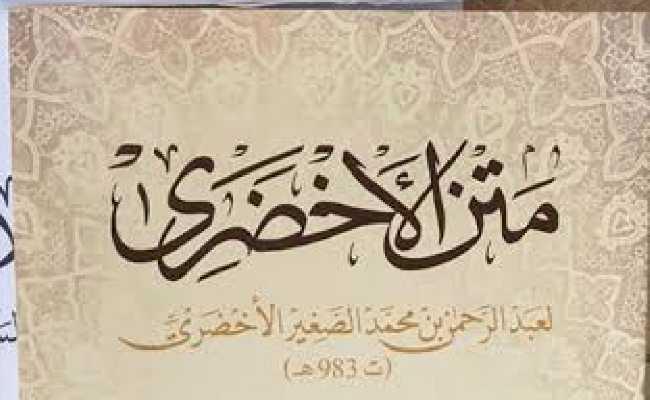 متن الأخضري
لعبد الرحمن بن محمد الصغير الأخضري
(ت 983 هـ)